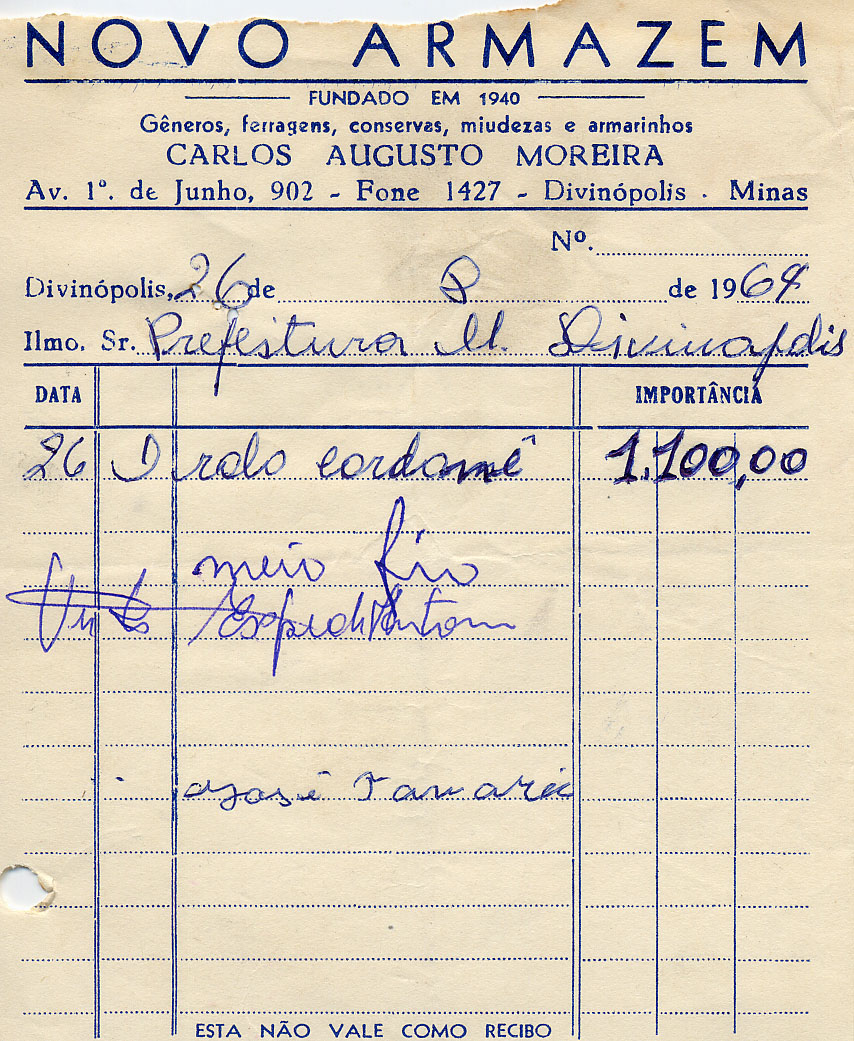 NOVO ARMAZEM
FUNDADO EM 1940
Gêneros, ferragens, conservas, miudezas e armarinhos
CARLOS AUGUSTO MOREIRA
Av. 1º. de Junho, 902 - Fone 1427 - Divinópolis - Minas
Nº.
Divinópolis, 26 de 8 de 1964
Ilmo. Sr. Prefeitura M. Divinopolis
DATA IMPORTÂNCIA
26 1 rolo cordomê 1.100,00
meio fio
José
ESTA NÃO VALE COMO RECIBO